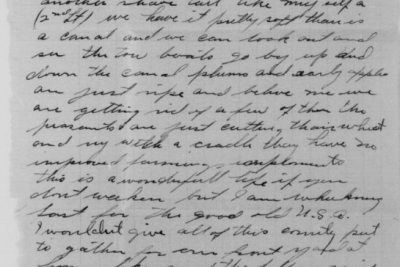 another shave tail like myself a
(2nd Lt) we have it pretty soft thair is
a canal and we can look out and
see the tow boats go by up and
down the canal plums and early apples
are just ripe and believe me we
are getting rid of a few of them the
peasants are just cutting thair wheat
and ry with a cradle they have no
improved farming implements
this is a wonderfull life if you
dont weaken but I am
for the good old U.S.A.
I wouldnt give all of this country put
to gather for our front yard at